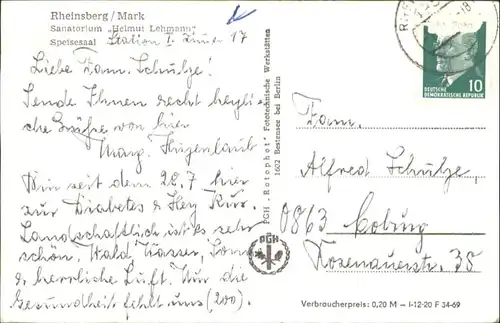 Rheinsberg / Mark
Sanatorium „Helmut Lehmann"
Speisesaal
Station I. Zimmer 17
Liebe Fam. Schulze!
Sende Ihnen recht herzli-
che Grüße von hier
Marg. Hugenlaub
Bin seit dem 22.7 hier
zur Diabetes & Herz Kur.
Landschaftlich ist es sehr
schön, Wald Wasser, Sonne
& herrliche Luft. Nur die
Gesundheit fehlt uns (200).
PGH „Rotophot" Fototechnische Werkstätten
1622 Bestensee bei Berlin
PGH
10
DEUTSCHE
DEMOKRATISCHE REPUBLIK
18
Fam.
Alfred Schulze
0863 Coburg
Rosenauerstr. 35
Verbraucherpreis: 0,20 M – I-12-20 F 34-69